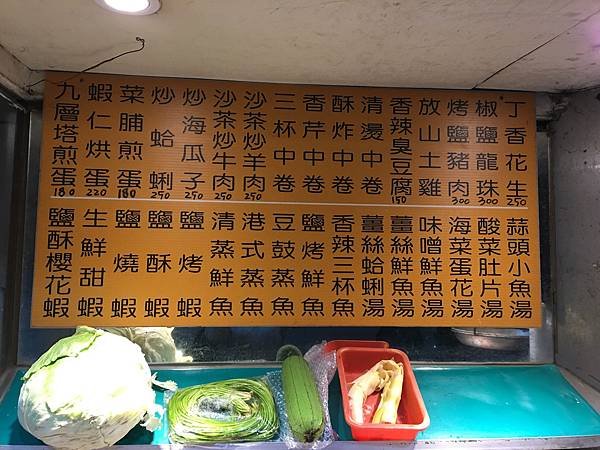 丁香花生 250
椒鹽龍珠 300
烤鹽豬肉 300
放山土雞
香辣臭豆腐 150
清燙中卷
酥炸中卷
香芹中卷
三杯中卷
沙茶炒羊肉 250
沙茶炒牛肉 250
炒海瓜子 250
炒蛤蜊 250
菜脯煎蛋 180
蝦仁烘蛋 220
九層塔煎蛋 180
蒜頭小魚湯
酸菜肚片湯
海菜蛋花湯
味噌鮮魚湯
薑絲鮮魚湯
薑絲蛤蜊湯
香辣三杯魚
鹽烤鮮魚
豆鼓蒸魚
港式蒸魚
清蒸鮮魚
鹽烤蝦
鹽酥蝦
鹽燒蝦
生鮮甜蝦
鹽酥櫻花蝦